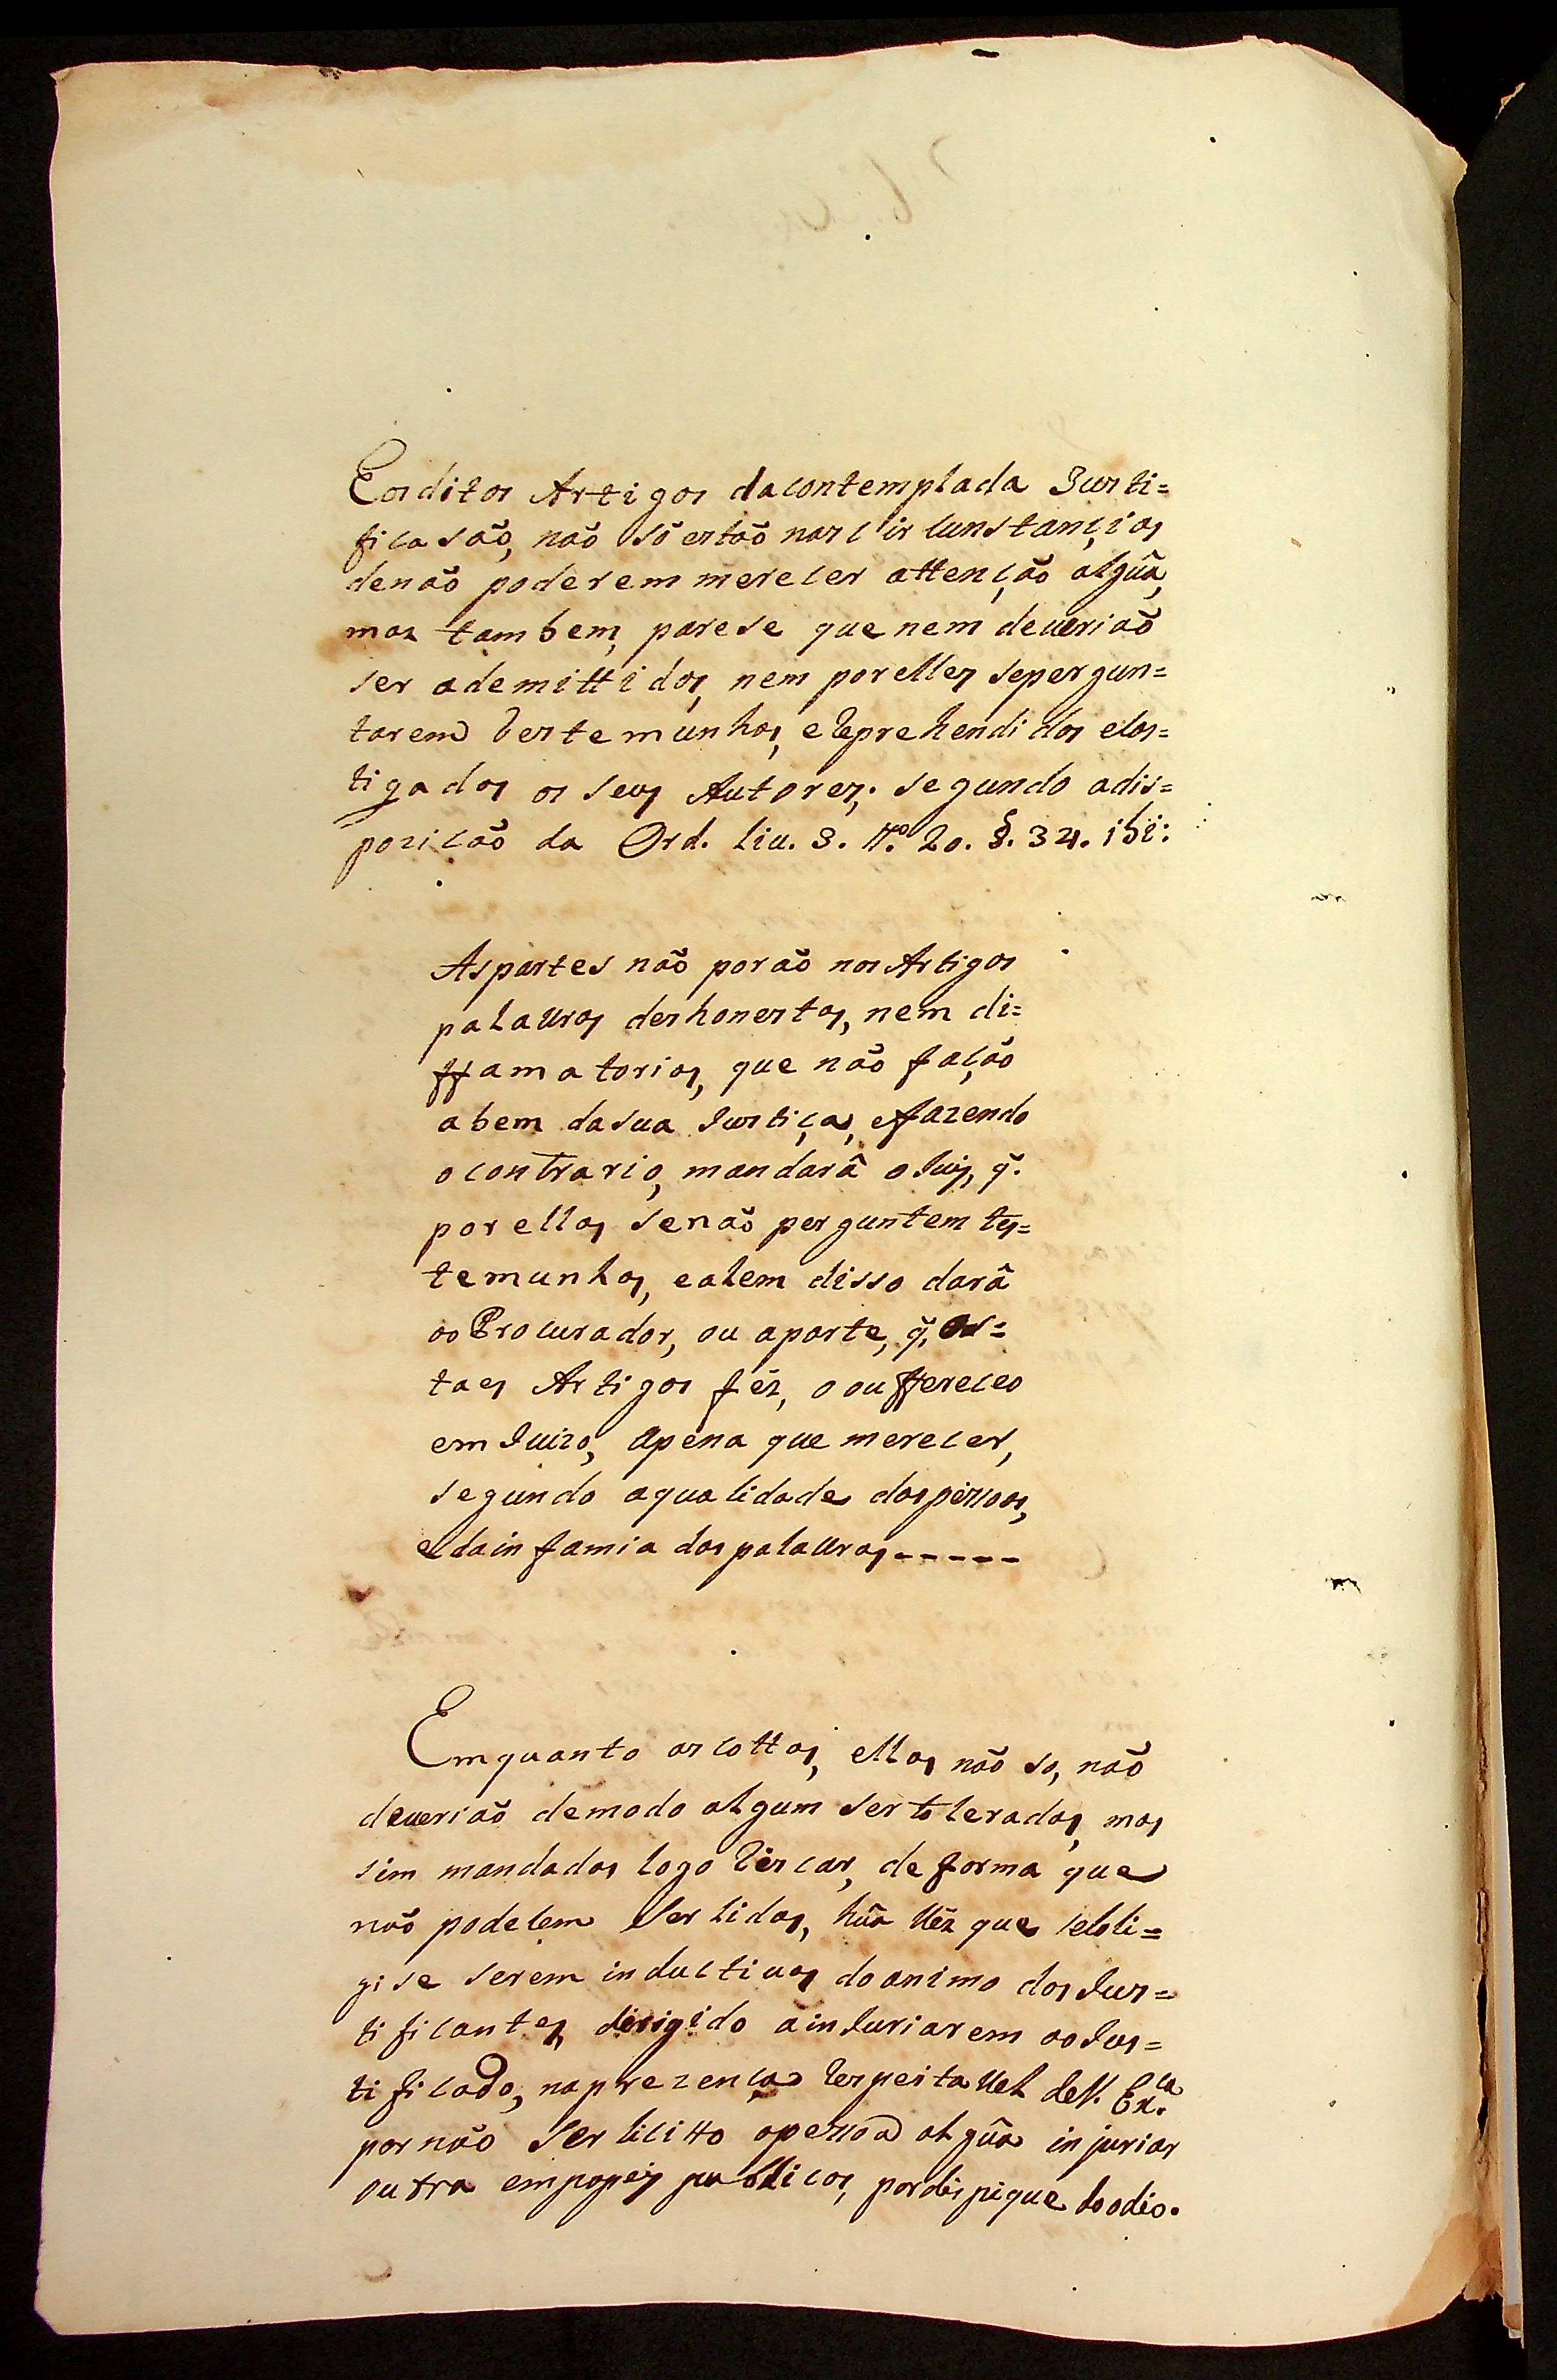 Eos ditos Artigos da contemplada Justi=
ficasaõ, naõ só estaõ nas circunstançias
de naõ poderem merecer attençaõ algûa,
mas tambem, parese que nem deueriaõ
ser ademittidos, nem por elles se pergun=
tarem testemunhas, e reprehendidos e cas=
tigados os seus Autores; segundo a dis=
poziçaõ da Ord. Liu. 3. tt.º 20. §. 34. ibi:
As partes naõ poraõ nos Artigos
palauras deshonestas, nem di=
ffamatorias, que naõ façaõ
a bem da sua Justiça, e fazendo
o contrario, mandarâ o Juis, q̃.
por ellas se naõ perguntem tes=
temunhas, e alem disso darâ
ao Procurador, ou a parte, q̃, os=
taes Artigos fés, o ou ffereceo
em Juizo, a pena que merecer,
segundo a qualidade das pessoas,
e da infamia das palauras-----
Emquanto as cottas, ellas naõ so, naõ
deueriaõ de modo algum ser toleradas, mas
sim mandadas logo riscar, de forma que
naõ podesem ser lidas, hûa ués que se coli=
gi se serem inductiuas do animo dos Jus=
tificantes, dirigido a inJuriarem ao Jus=
tificado, na prezença respeitauel de V. Ex.ca
por naõ ser licitto a pessoa algûa injuriar
outra em papeis publicos, por despique do odio.